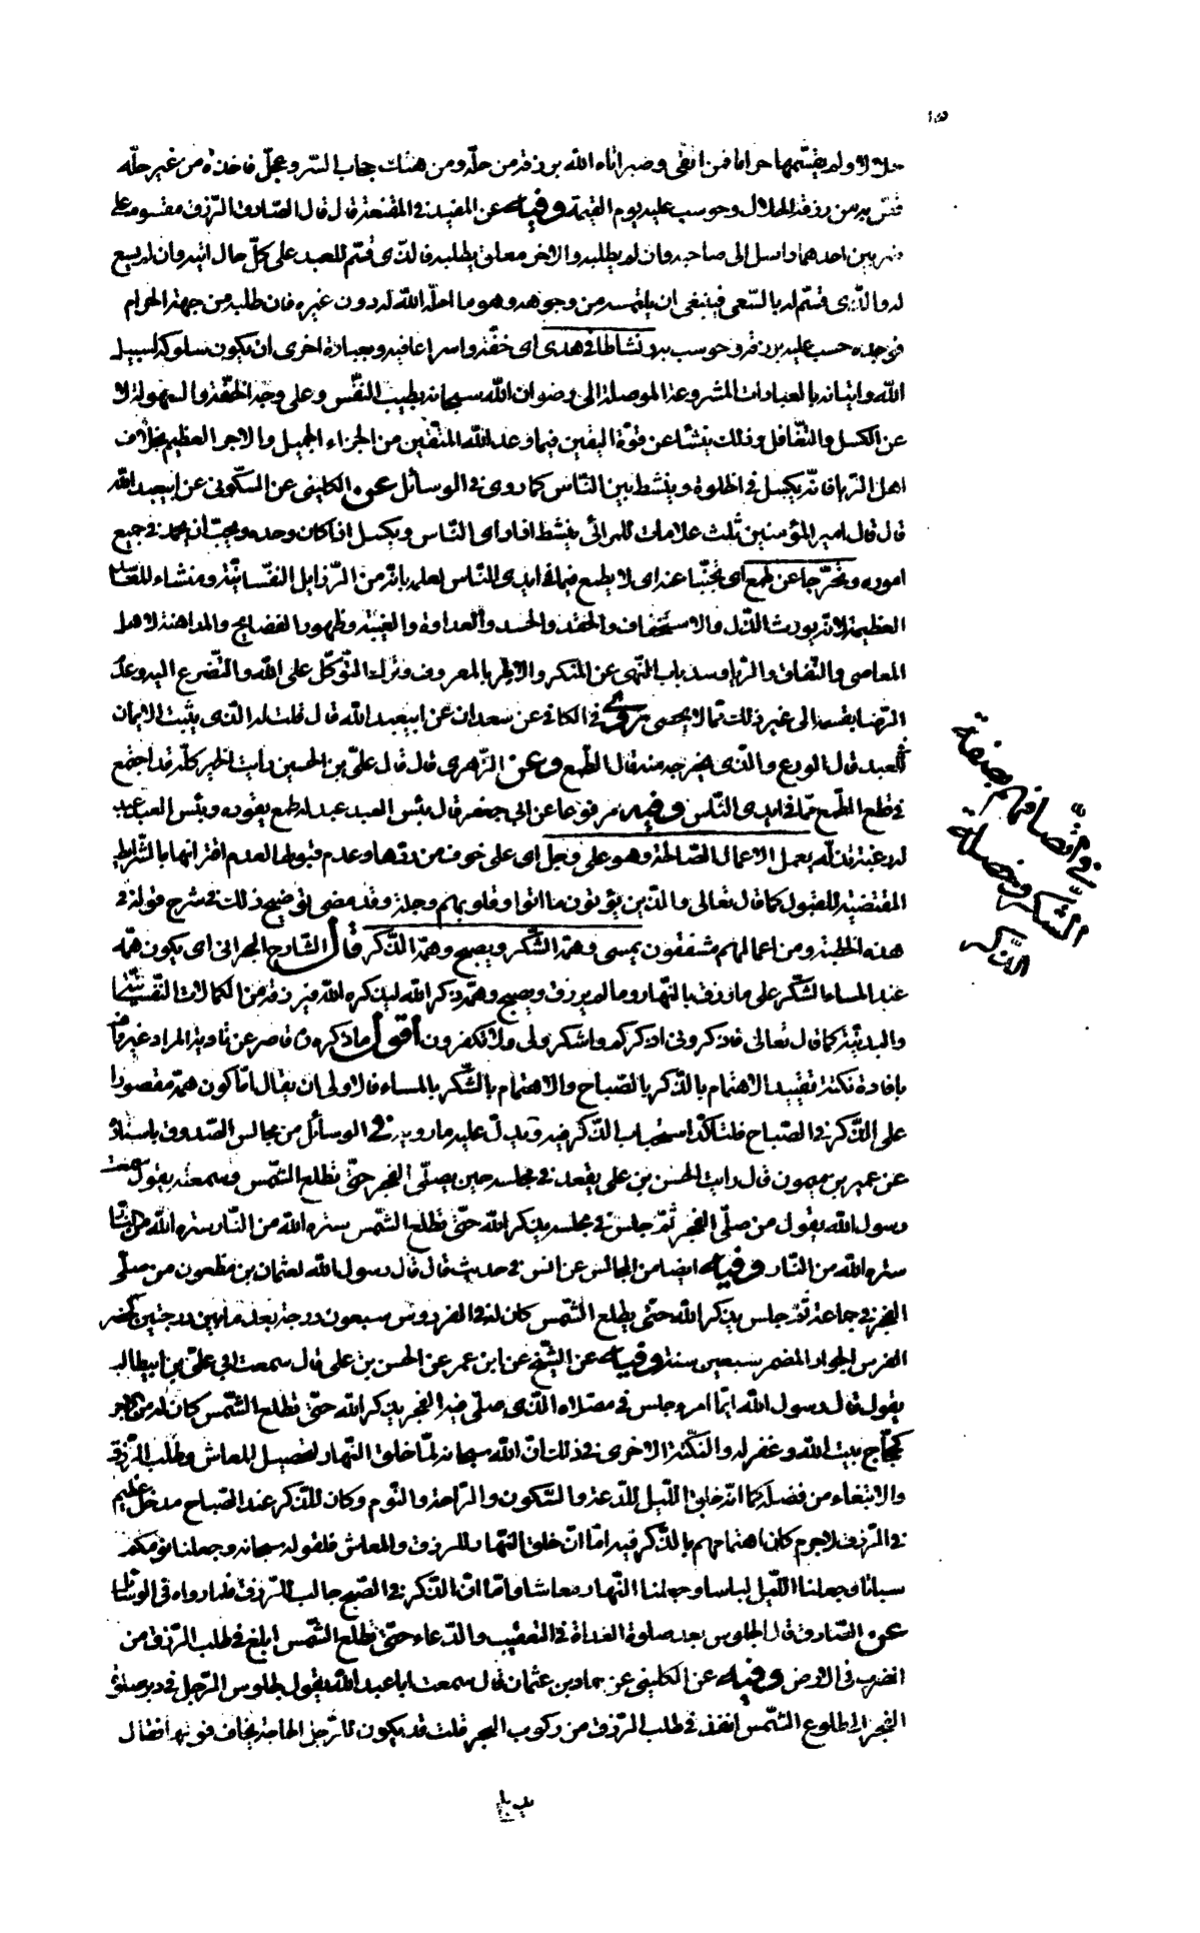 حلالا ولم يقسمها حراما فمن اتقى وصبر اتاه الله برزقه من حله ومن هتك حجاب الستر وعجل فاخذه من غير حله
قص به من رزقه الحلال وحوسب عليه يوم القيمة وفيه عن المفيد في المقنعة قال قال الصادق الرزق مقسوم على
ضربين احدهما واصل الى صاحبه وان لم يطلبه والاخر معلق بطلبه فالذى قسم للعبد على كل حال اتيه وان لم يسع
له والذى قسم له بالسعى فينبغى ان يلتمسه من وجوهه وهو ما احله الله له دون غيره فان طلبه من جهة الحرام
فوجده حسب عليه برزقه وحوسب به ونشاطا في هدى اى خفة واسراعا فيه وبعبارة اخرى ان يكون سلوكه لسبيل
الله واتيانه بالعبادات المشروعة الموصلة الى رضوان الله سبحانه بطيب النفس وعلى وجه الخفة والسهولة لا
عن الكسل والتثاقل وذلك ينشأ عن قوة اليقين فيما وعد الله المتقين من الجزاء الجميل والاجر العظيم بخلاف
اهل الريا فانه يكسل في الخلوة وينشط بين الناس كما روى في الوسائل عن الكلينى عن السكونى عن ابيعبد الله
قال قال امير المؤمنين ثلث علامات للمرائى ينشط اذا راى الناس ويكسل اذا كان وحده ويحب ان يحمد في جميع
اموره وتحرجا عن طمع اى تجنبا عنه اى لا يطمع فيما في ايدى الناس لعلمه بانه من الرذايل النفسانية ومنشاء للمفاسد
العظيمة لانه يورث الذل والاستخفاف والحقد والحسد والعداوة والغيبة وظهور الفضايح والمداهنة لاهل
المعاصى والنفاق والريا وسد باب النهى عن المنكر والامر بالمعروف وترك التوكل على الله والتضرع اليه وعدم
الرضا بقسمه الى غير ذلك مما لا يحصى روى في الكافى عن سعدان عن ابيعبد الله قال قلت له الذى يثبت الايمان
في العبد قال الورع والذى يخرجه منه قال الطمع وعن الزهرى قال قال على بن الحسين رايت الخير كله قد اجتمع
في قطع الطمع عما في ايدى الناس وفيه مرفوعا عن ابى جعفر قال بئس العبد عبد له طمع يقوده وبئس العبد عبد
له رغبة تذله يعمل الاعمال الصالحة وهو على وجل اى على خوف من ردها وعدم قبولها لعدم اقترانها بالشرايط
المقتضية للقبول كما قال تعالى والذين يؤتون ما اتوا وقلوبهم وجلة وقد مضى توضيح ذلك في شرح قوله في
هذه الخطبة ومن اعمالهم مشفقون يمسى وهمه الشكر ويصبح وهمه الذكر قال الشارح البحرانى اى يكون همه
عند المساء الشكر على ما رزق بالنهار وما لم يرزق ويصبح وهمه ذكر الله ليذكره الله فيرزقه من الكمالات النفسانية
والبدنية كما قال تعالى فاذكرونى اذكركم واشكروا لى ولا تكفرون اقول ما ذكره قاصر عن تادية المراد غير واف
بافادة نكتة تقييد الاهتمام بالذكر بالصباح والاهتمام بالشكر بالمساء فالاولى ان يقال اما كون همه مقصورا
على الذكر في الصباح فلتاكد استحباب الذكر فيه ويدل عليه ما رويه في الوسائل من مجالس الصدوق باسناده
عن عمير بن ميمون قال رايت الحسن بن على يقعد في مجلسه حين يصلى الفجر حتى تطلع الشمس وسمعته يقول سمعت
رسول الله يقول من صلى الفجر ثم جلس في مجلسه يذكر الله حتى تطلع الشمس ستره الله من النار ستره الله من النار
ستره الله من النار وفيه ايضا من المجالس عن انس في حديث قال قال رسول الله لعثمان بن مظعون من صلى
الفجر في جماعة ثم جلس يذكر الله حتى يطلع الشمس كان له في الفردوس سبعون درجة بعد ما بين درجتين كحضر
الفرس الجواد المضمر سبعين سنة وفيه عن الشيخ عن ابن عمر عن الحسن بن على قال سمعت ابى على بن ابيطالب
يقول قال رسول الله ايما امرء جلس في مصلاه الذى صلى فيه الفجر يذكر الله حتى تطلع الشمس كان له من الاجر
كحجاج بيت الله وغفر له والنكتة الاخرى في ذلك ان الله سبحانه لما خلق النهار لتحصيل المعاش وطلب الرزق
والابتغاء من فضله كما انه خلق الليل للدعة والسكون والراحة والنوم وكان للذكر عند الصباح مدخل عظيم
في الرزق لاجرم كان اهتمامهم بالذكر فيه اما ان خلق النهار للرزق والمعاش فلقوله سبحانه وجعلنا نومكم
سباتا وجعلنا الليل لباسا وجعلنا النهار معاشا واما ان الذكر في الصبح جالب للرزق فلما رواه في الوسائل
عن الصادق قال الجلوس بعد صلوة الغداة في التعقيب والدعاء حتى تطلع الشمس ابلغ في طلب الرزق من
الضرب في الارض وفيه عن الكلينى عن حماد بن عثمان قال سمعت ابا عبد الله يقول لجلوس الرجل في دبر صلوة
الفجر الى طلوع الشمس انفذ في طلب الرزق من ركوب البحر فقلت قد يكون للرجل الحاجة يخاف فوتها فقال
في اتصافهم بصفة
الشكر وخصلة
الذكر